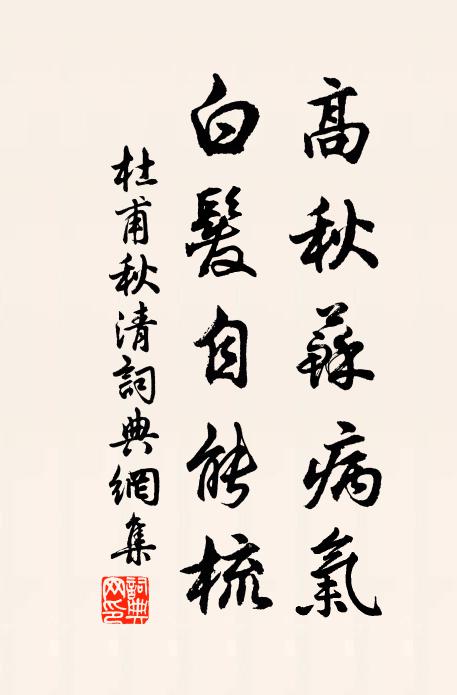 高秋蘇病氣
白髮自能梳
杜甫秋清詞典網集
詞典网印